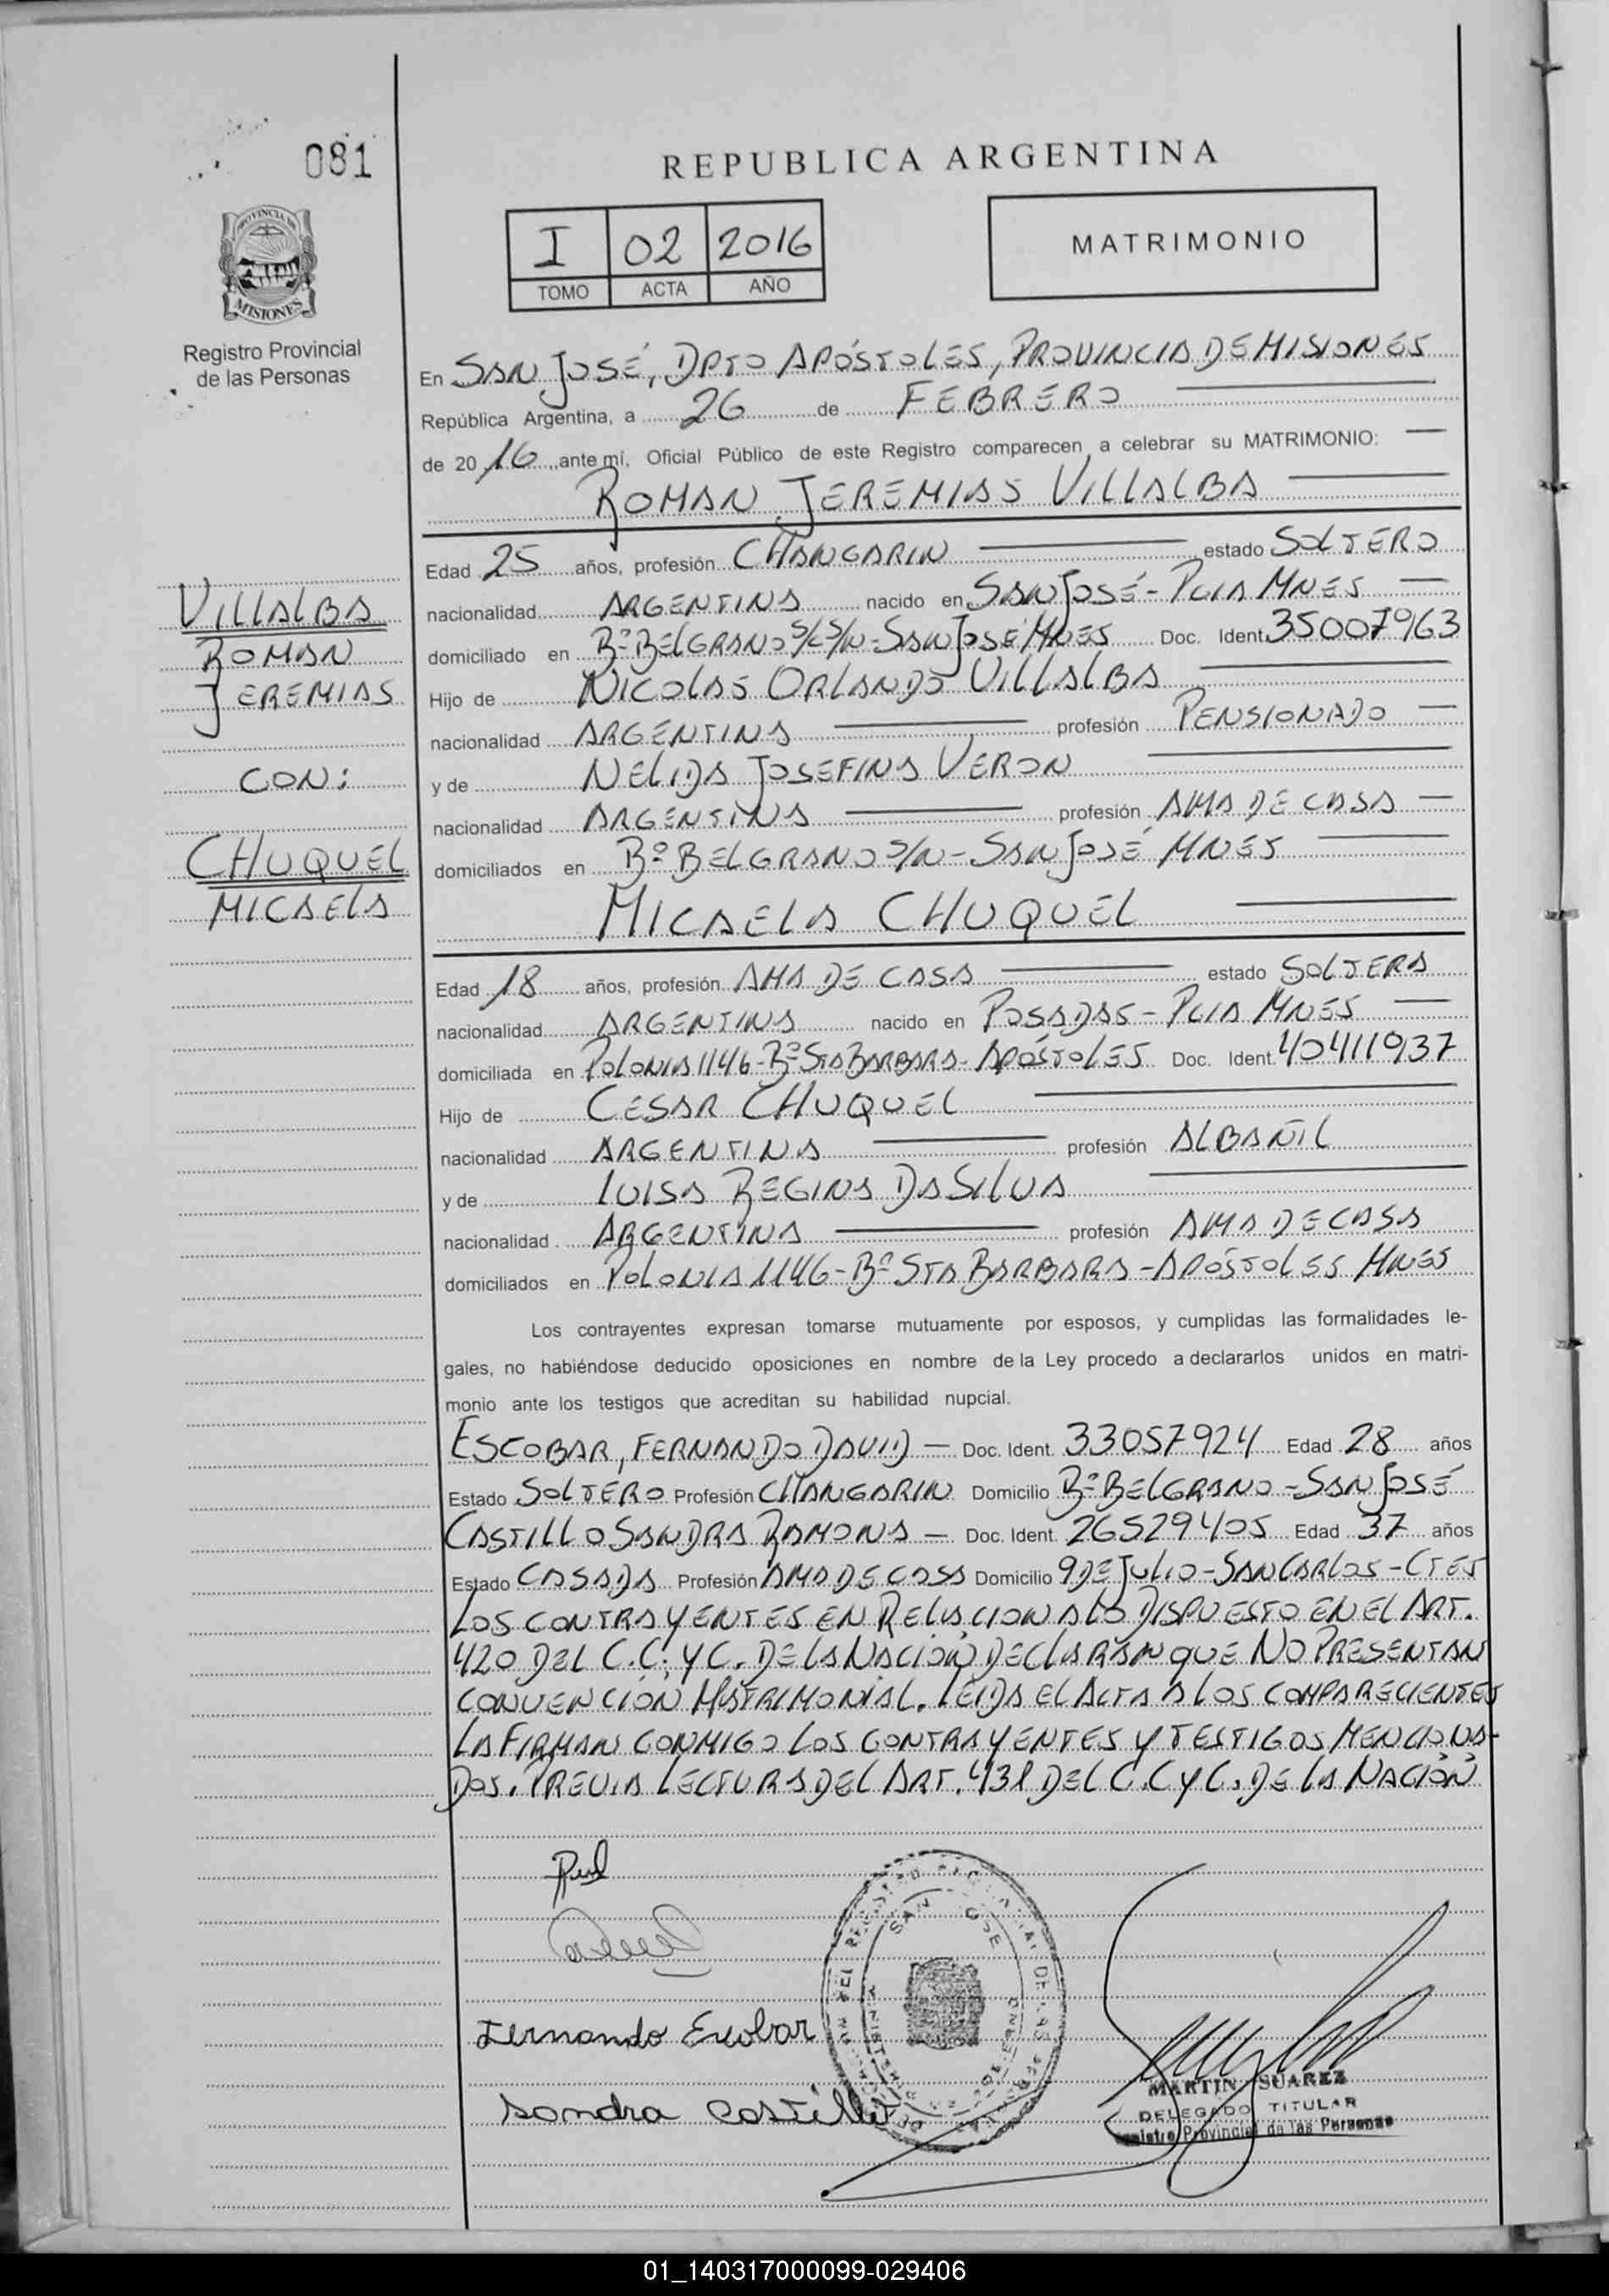 081
REPUBLICA ARGENTINA
PROVINCIA DE
MISIONES
Registro Provincial
de las Personas
I 02 2016
TOMO ACTA AÑO
MATRIMONIO
En SAN JOSÉ, DPTO APÓSTOLES, PROVINCIA DE MISIONES
República Argentina, a 26 de FEBRERO
de 2016 ante mí, Oficial Público de este Registro comparecen a celebrar su MATRIMONIO:
ROMAN JEREMIAS VILLALBA
Edad 25 años, profesión CHANGARIN estado SOLTERO
nacionalidad ARGENTINA nacido en SAN JOSÉ - PCIA MNES
domiciliado en Bº BELGRANO S/C S/N - SAN JOSÉ MNES Doc. Ident 35007963
Hijo de NICOLAS ORLANDO VILLALBA
nacionalidad ARGENTINA profesión PENSIONADO
y de NELIDA JOSEFINA VERON
nacionalidad ARGENTINA profesión AMA DE CASA
domiciliados en Bº BELGRANO S/N - SAN JOSÉ MNES
MICAELA CHUQUEL
Edad 18 años, profesión AMA DE CASA estado SOLTERA
nacionalidad ARGENTINA nacido en POSADAS - PCIA MNES
domiciliada en POLONIA 1146 - Bº STA BARBARA - APÓSTOLES Doc. Ident. 40411937
Hijo de CESAR CHUQUEL
nacionalidad ARGENTINA profesión ALBAÑIL
y de LUISA REGINA DA SILVA
nacionalidad ARGENTINA profesión AMA DE CASA
domiciliados en POLONIA 1146 - Bº STA BARBARA - APÓSTOLES MNES
Los contrayentes expresan tomarse mutuamente por esposos, y cumplidas las formalidades le-
gales, no habiéndose deducido oposiciones en nombre de la Ley procedo a declararlos unidos en matri-
monio ante los testigos que acreditan su habilidad nupcial.
ESCOBAR, FERNANDO DAVID - Doc. Ident. 33057924 Edad 28 años
Estado SOLTERO Profesión CHANGARIN Domicilio Bº BELGRANO - SAN JOSÉ
CASTILLO SANDRA RAMONA - Doc. Ident. 26529405 Edad 37 años
Estado CASADA Profesión AMA DE CASA Domicilio 9 DE JULIO - SAN CARLOS - CTES
LOS CONTRAYENTES EN RELACION A LO DISPUESTO EN EL ART.
420 DEL C.C. Y C. DE LA NACIÓN DECLARAN QUE NO PRESENTAN
CONVENCIÓN MATRIMONIAL. LEIDA EL ACTA A LOS COMPARECIENTES
LA FIRMAN CONMIGO LOS CONTRAYENTES Y TESTIGOS MENCIONA-
DOS. PREVIA LECTURA DEL ART. 431 DEL C.C Y C. DE LA NACIÓN
VILLALBA
ROMAN
JEREMIAS
CON:
CHUQUEL
MICAELA
Fernando Escobar
Sandra Castillo
SAN JOSE
MARTIN SUAREZ
DELEGADO TITULAR
Provincial de las Personas
01_140317000099-029406